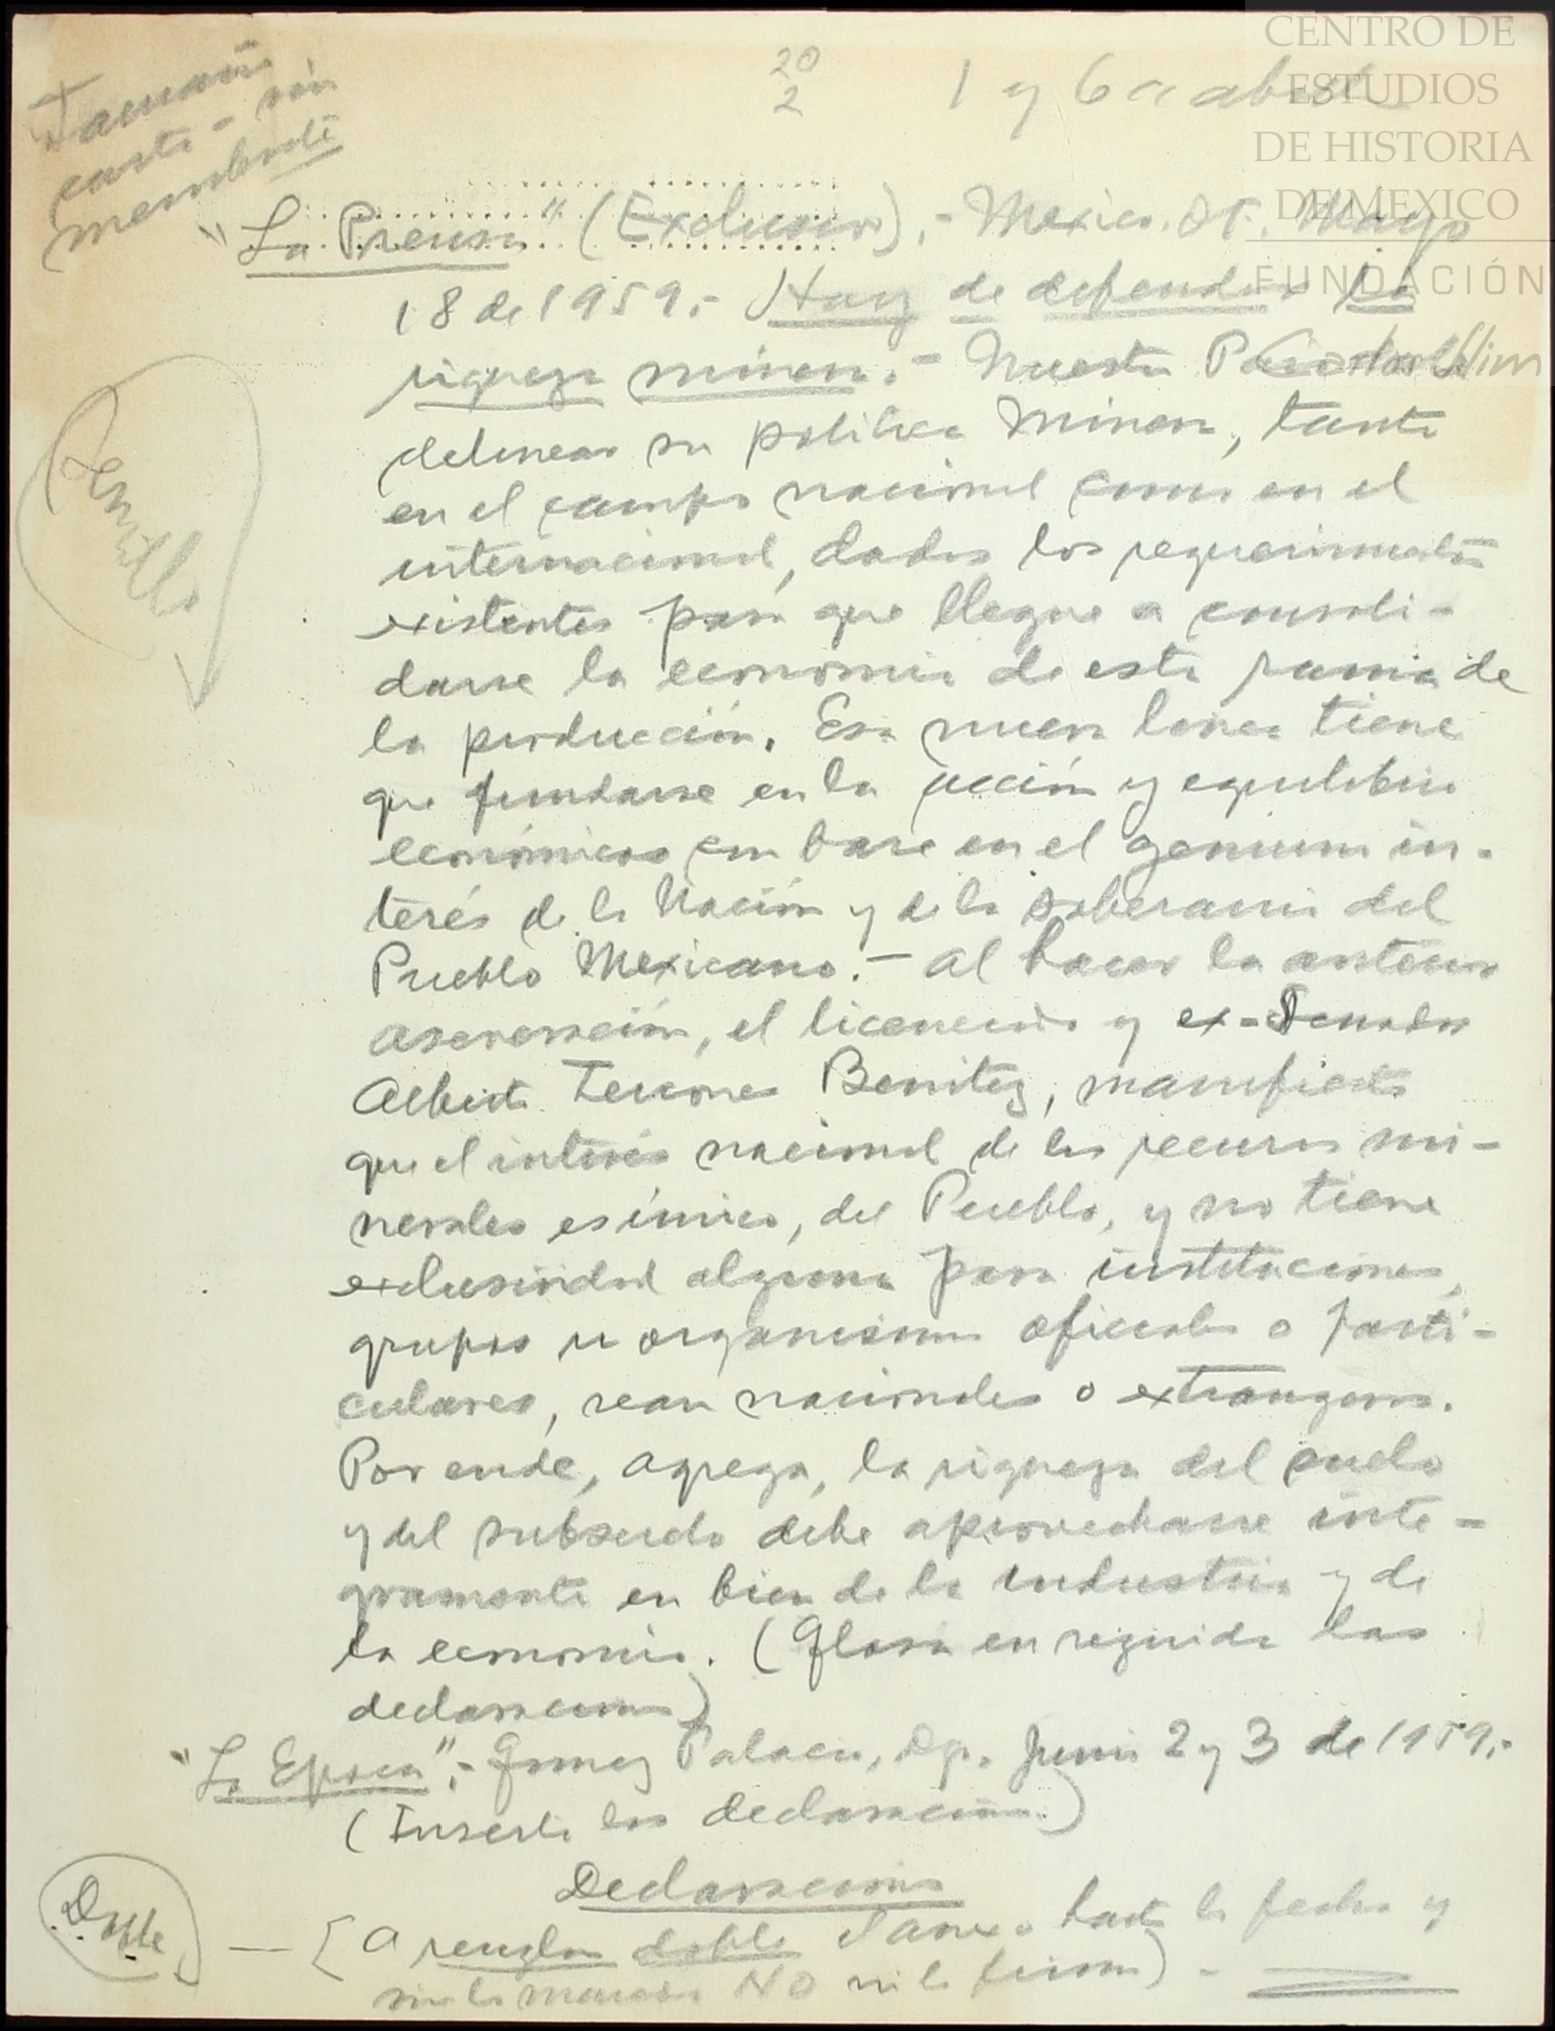 CENTRO DE
ESTUDIOS
DE HISTORIA
DE MEXICO
FUNDACIÓN
Carlos Slim
20
2
1 y 6 a
Tamaño
carta - sin
membrete
"La Prensa" (Exclusivo).- Mexico. D.F. Mayo
18 de 1959.- Hay de defender la
riqueza minera.- Nuestro
Sencillo
delinear su politica Minera, tanto
en el campo nacional como en el
internacional, dados los requerimientos
existentes para que llegue a consoli-
darse la economia de esta rama de
la producción. Esa nueva linea tiene
que fundarse en la acción y equilibrio
económicos con base en el genuino in-
terés de la Nación y de la soberania del
Pueblo Mexicano.- Al hacer la anterior
aseveración, el licenciado y ex-Senador
Alberto Terrones Benitez, manifiesta
que el interés nacional de los recursos mi-
nerales es único, del Pueblo, y no tiene
exclusividad alguna para instituciones,
grupos u organismos oficiales o parti-
culares, sean nacionales o extrangeros.
Por ende, agrega, la riqueza del suelo
y del subsuelo debe aprovecharse inte-
gramente en bien de la industria y de
la economia. (Glosa en seguida las
declaraciones)
"La Epoca".- Gomez Palacio, Dgo. Junio 2 y 3 de 1959.-
(Inserta las declaraciones)
Declaraciones
Doble
— [A renglon doble hasta la fecha y
NO ni la firma) -